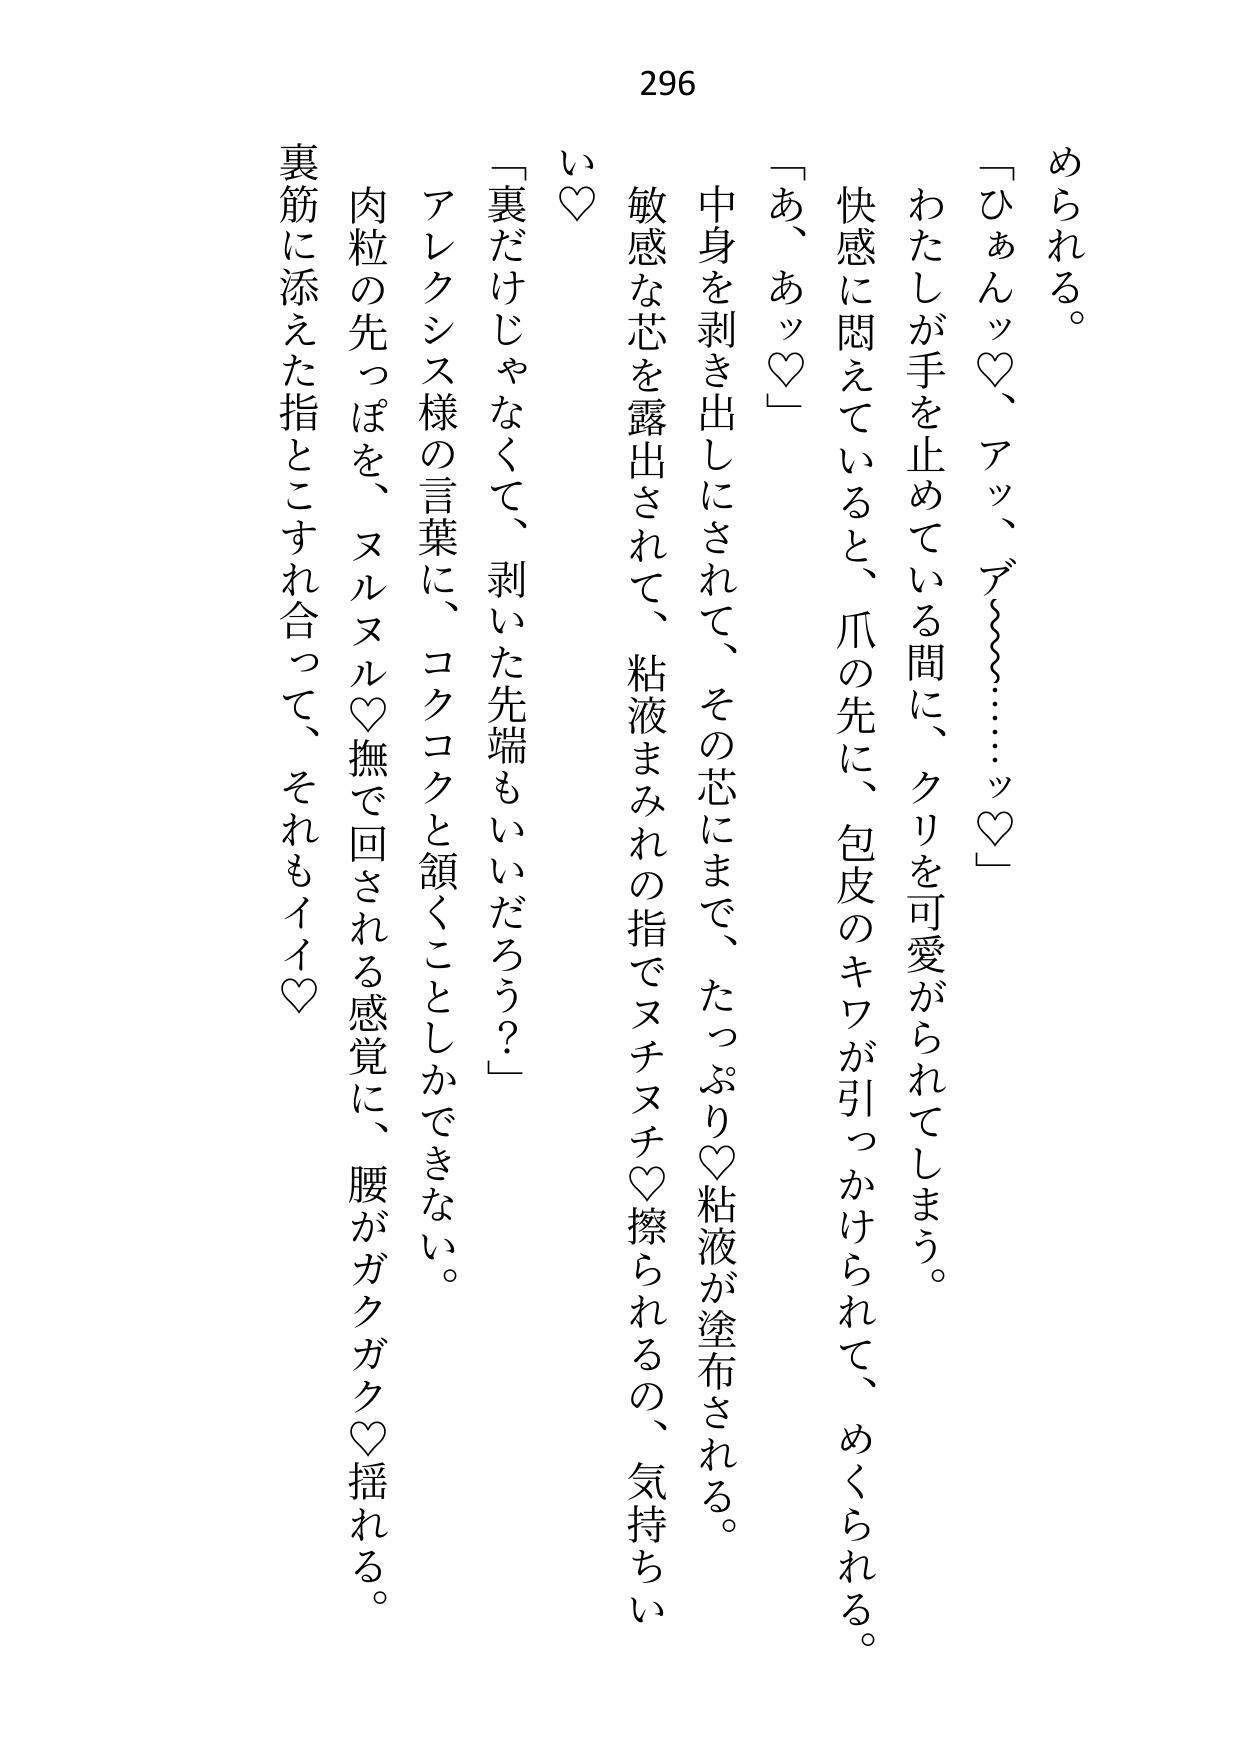 296
められる。
「ひぁんッ♡、アッ、ア゛〜〜〜……ッ♡」
わたしが手を止めている間に、クリを可愛がられてしまう。
快感に悶えていると、爪の先に、包皮のキワが引っかけられて、めくられる。
「あ、あッ♡」
中身を剥き出しにされて、その芯にまで、たっぷり♡粘液が塗布される。
敏感な芯を露出されて、粘液まみれの指でヌチヌチ♡擦られるの、気持ちい
い♡
「裏だけじゃなくて、剥いた先端もいいだろう？」
アレクシス様の言葉に、コクコクと頷くことしかできない。
肉粒の先っぽを、ヌルヌル♡撫で回される感覚に、腰がガクガク♡揺れる。
裏筋に添えた指とこすれ合って、それもイイ♡